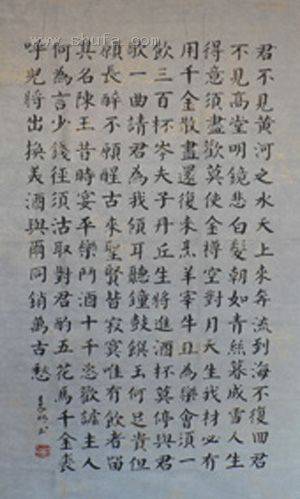 www.shufa.com
君不見黃河之水天上來奔流到海不復回君
不見高堂明鏡悲白髮朝如青絲暮成雪人生
得意須盡歡莫使金樽空對月天生我材必有
用千金散盡還復來烹羊宰牛且為樂會須一
飲三百杯岑夫子丹丘生將進酒杯莫停與君
歌一曲請君為我傾耳聽鐘鼓饌玉何足貴但
願長醉不願醒古來聖賢皆寂寞唯有飲者留
其名陳王昔時宴平樂鬥酒十千恣歡謔主人
何為言少錢徑須沽取對君酌五花馬千金裘
呼兒將出換美酒與爾同銷萬古愁